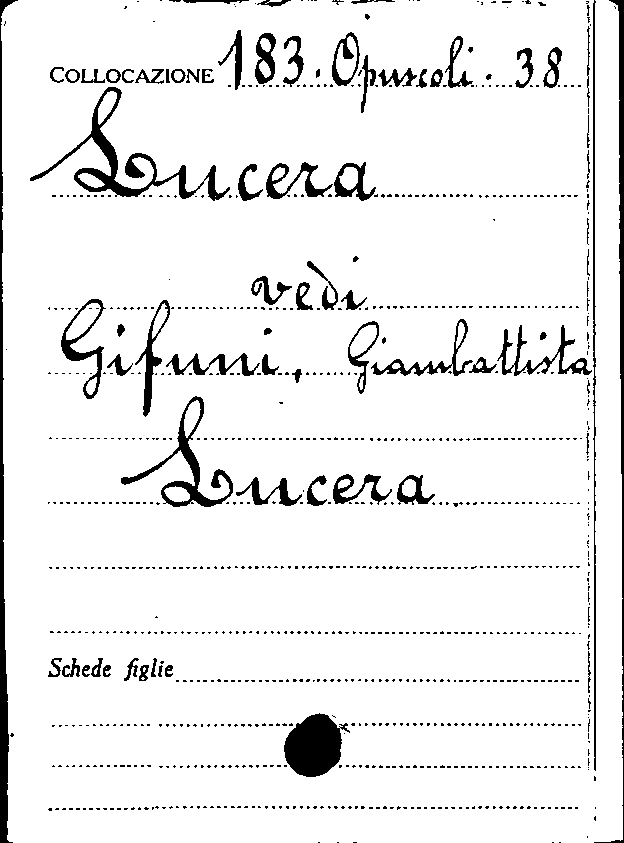 COLLOCAZIONE 183. Opuscoli. 38
Lucera
vedi
Gifuni, Giambattista
Lucera
Schede figlie